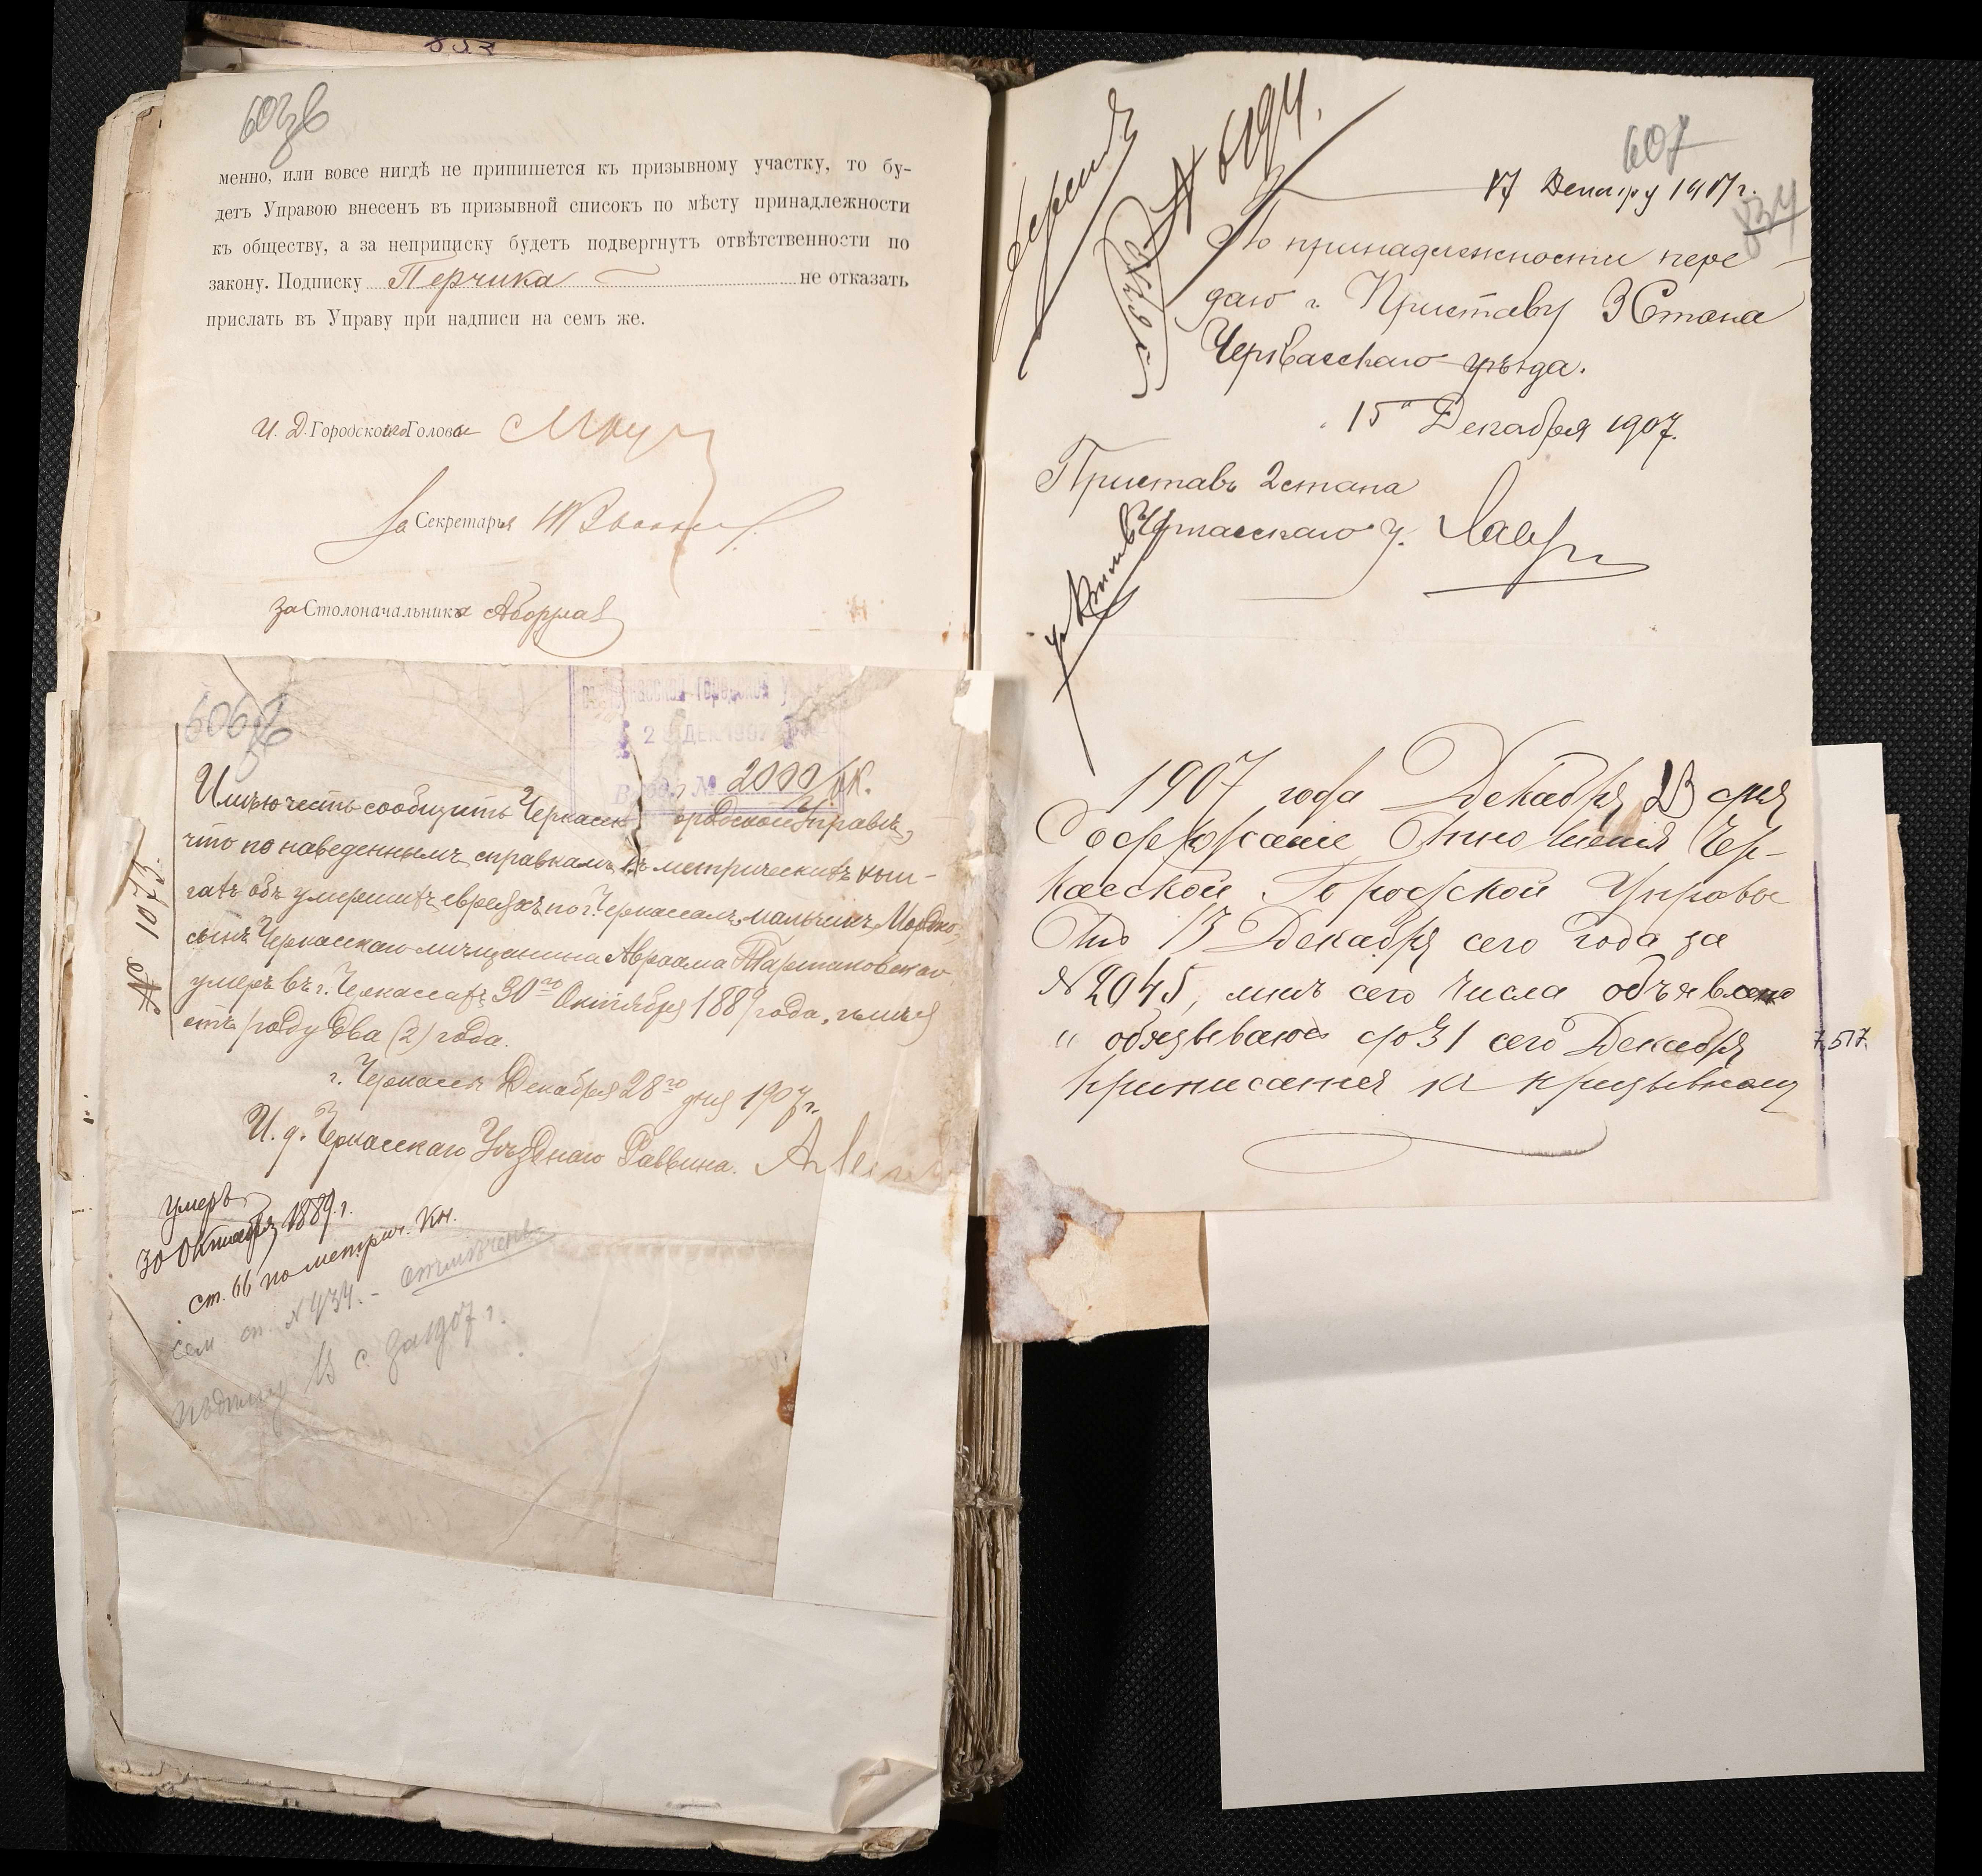 603б
менно, или вовсе нигдѣ не припишется къ призывному участку, то бу-
детъ Управою внесенъ въ призывной списокъ по мѣсту принадлежности
къ обществу, а за неприписку будетъ подвергнутъ отвѣтственности по
закону. Подписку Перчика не отказать
прислать въ Управу при надписи на семъ же.
И. Д. Городского Головы
За Секретаря
за Столоначальника
Городской
2 ДЕК 1907
Вход. № 2000
№ 1073.
Имѣю честь сообщить Черкасск ородской Управѣ,
что по наведеннымъ справкамъ въ метрическихъ кни-
гахъ объ умершихъ евреяхъ по г. Черкассамъ, мальчикъ Мордко,
сынъ Черкасскаго мѣщанина Авраама Тартаковскаго
умеръ въ г. Черкассахъ 30го Октября 1889 года, имѣя
отъ роду два (2) года.
г. Черкассы Декабря 28го дня 1907 г.
И. д. Черкасскаго Уѣзднаго Раввина.
умеръ
30 Октября 1889 г.
ст. 66 по метрич. Кн.
сем сп. № 434. - отмѣчено
с. за 1907 г.
607
834
№ 6194.
17 Декабря 1907 г.
По принадлежности пере-
даю г. Приставу 3 Стана
Черкасскаго уѣзда.
15 Декабря 1907.
Приставъ 2 стана
Черкасскаго у.
1907 года Декабря 23 дня
Содержаніе Отношенія Чер-
касской Городской Управы
Отъ 13 Декабря сего года за
№ 2045, мнѣ сего числа объявлено
и обязываюсь до 31 сего Декабря
приписаться къ призывному
7.517.